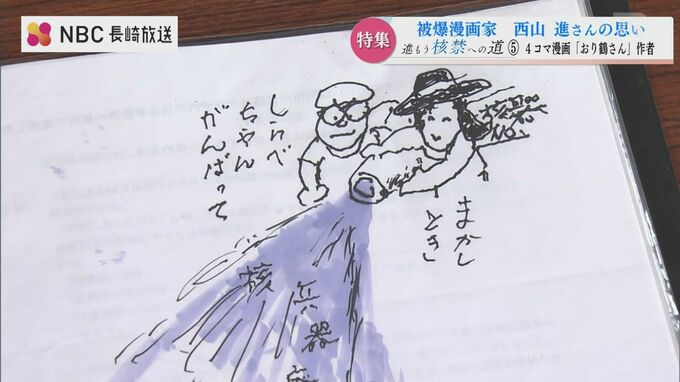 NBC 長崎放送
特集
被爆漫画家 西山 進さんの思い
進もう核禁への道⑤ 4コマ漫画「おり鶴さん」作者
核兵器
NO
しらべ
ちゃん
がんばって
まかし
とき
核兵器